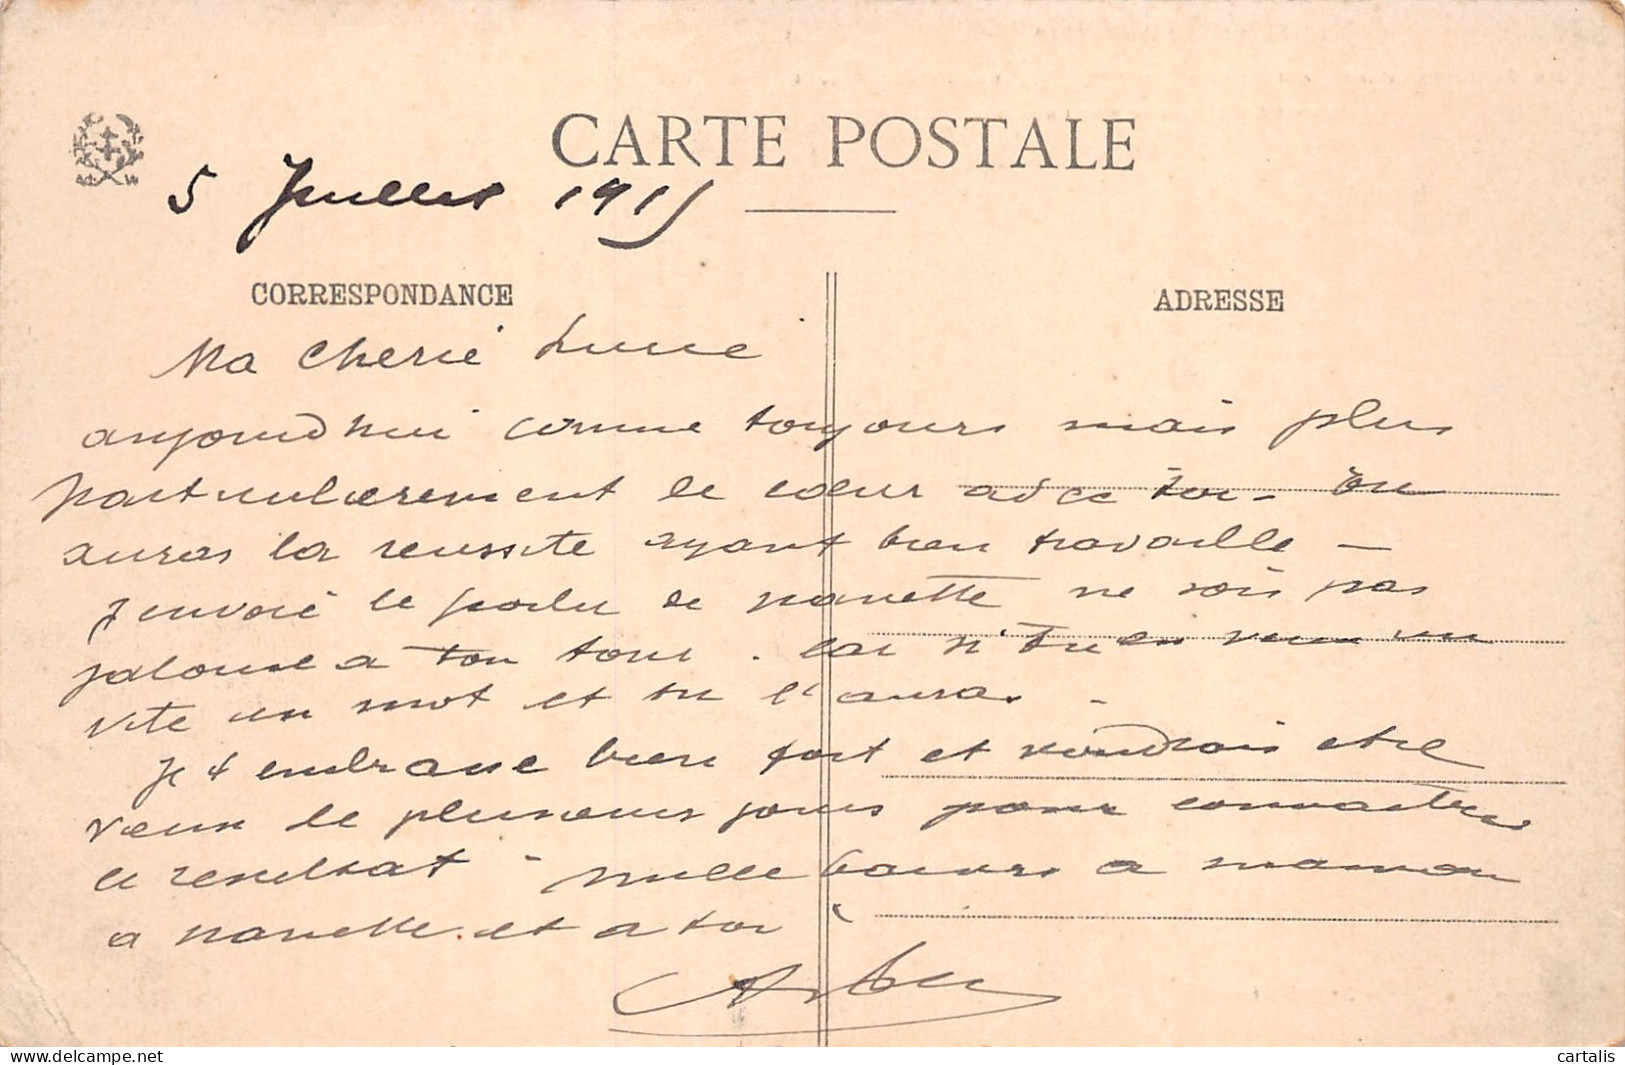 CARTE POSTALE
5 Juillet 1915
CORRESPONDANCE
ADRESSE
Ma Cherie Lucie
aujourd'hui comme toujours mais plus
particulierement le cœur avec toi - tu
auras la reussite ayant bien travaille -
J envoie le poilu de nanette ne sois pas
jalouse a ton tour . Car si tu en veux un
vite un mot et tu l'auras -
Je t embrasse bien fort et voudrais etre
vieux de plusieurs jours pour connaitre
le resultat - mille baisers a maman
a nanette et a toi
delcampe.net
cartalis